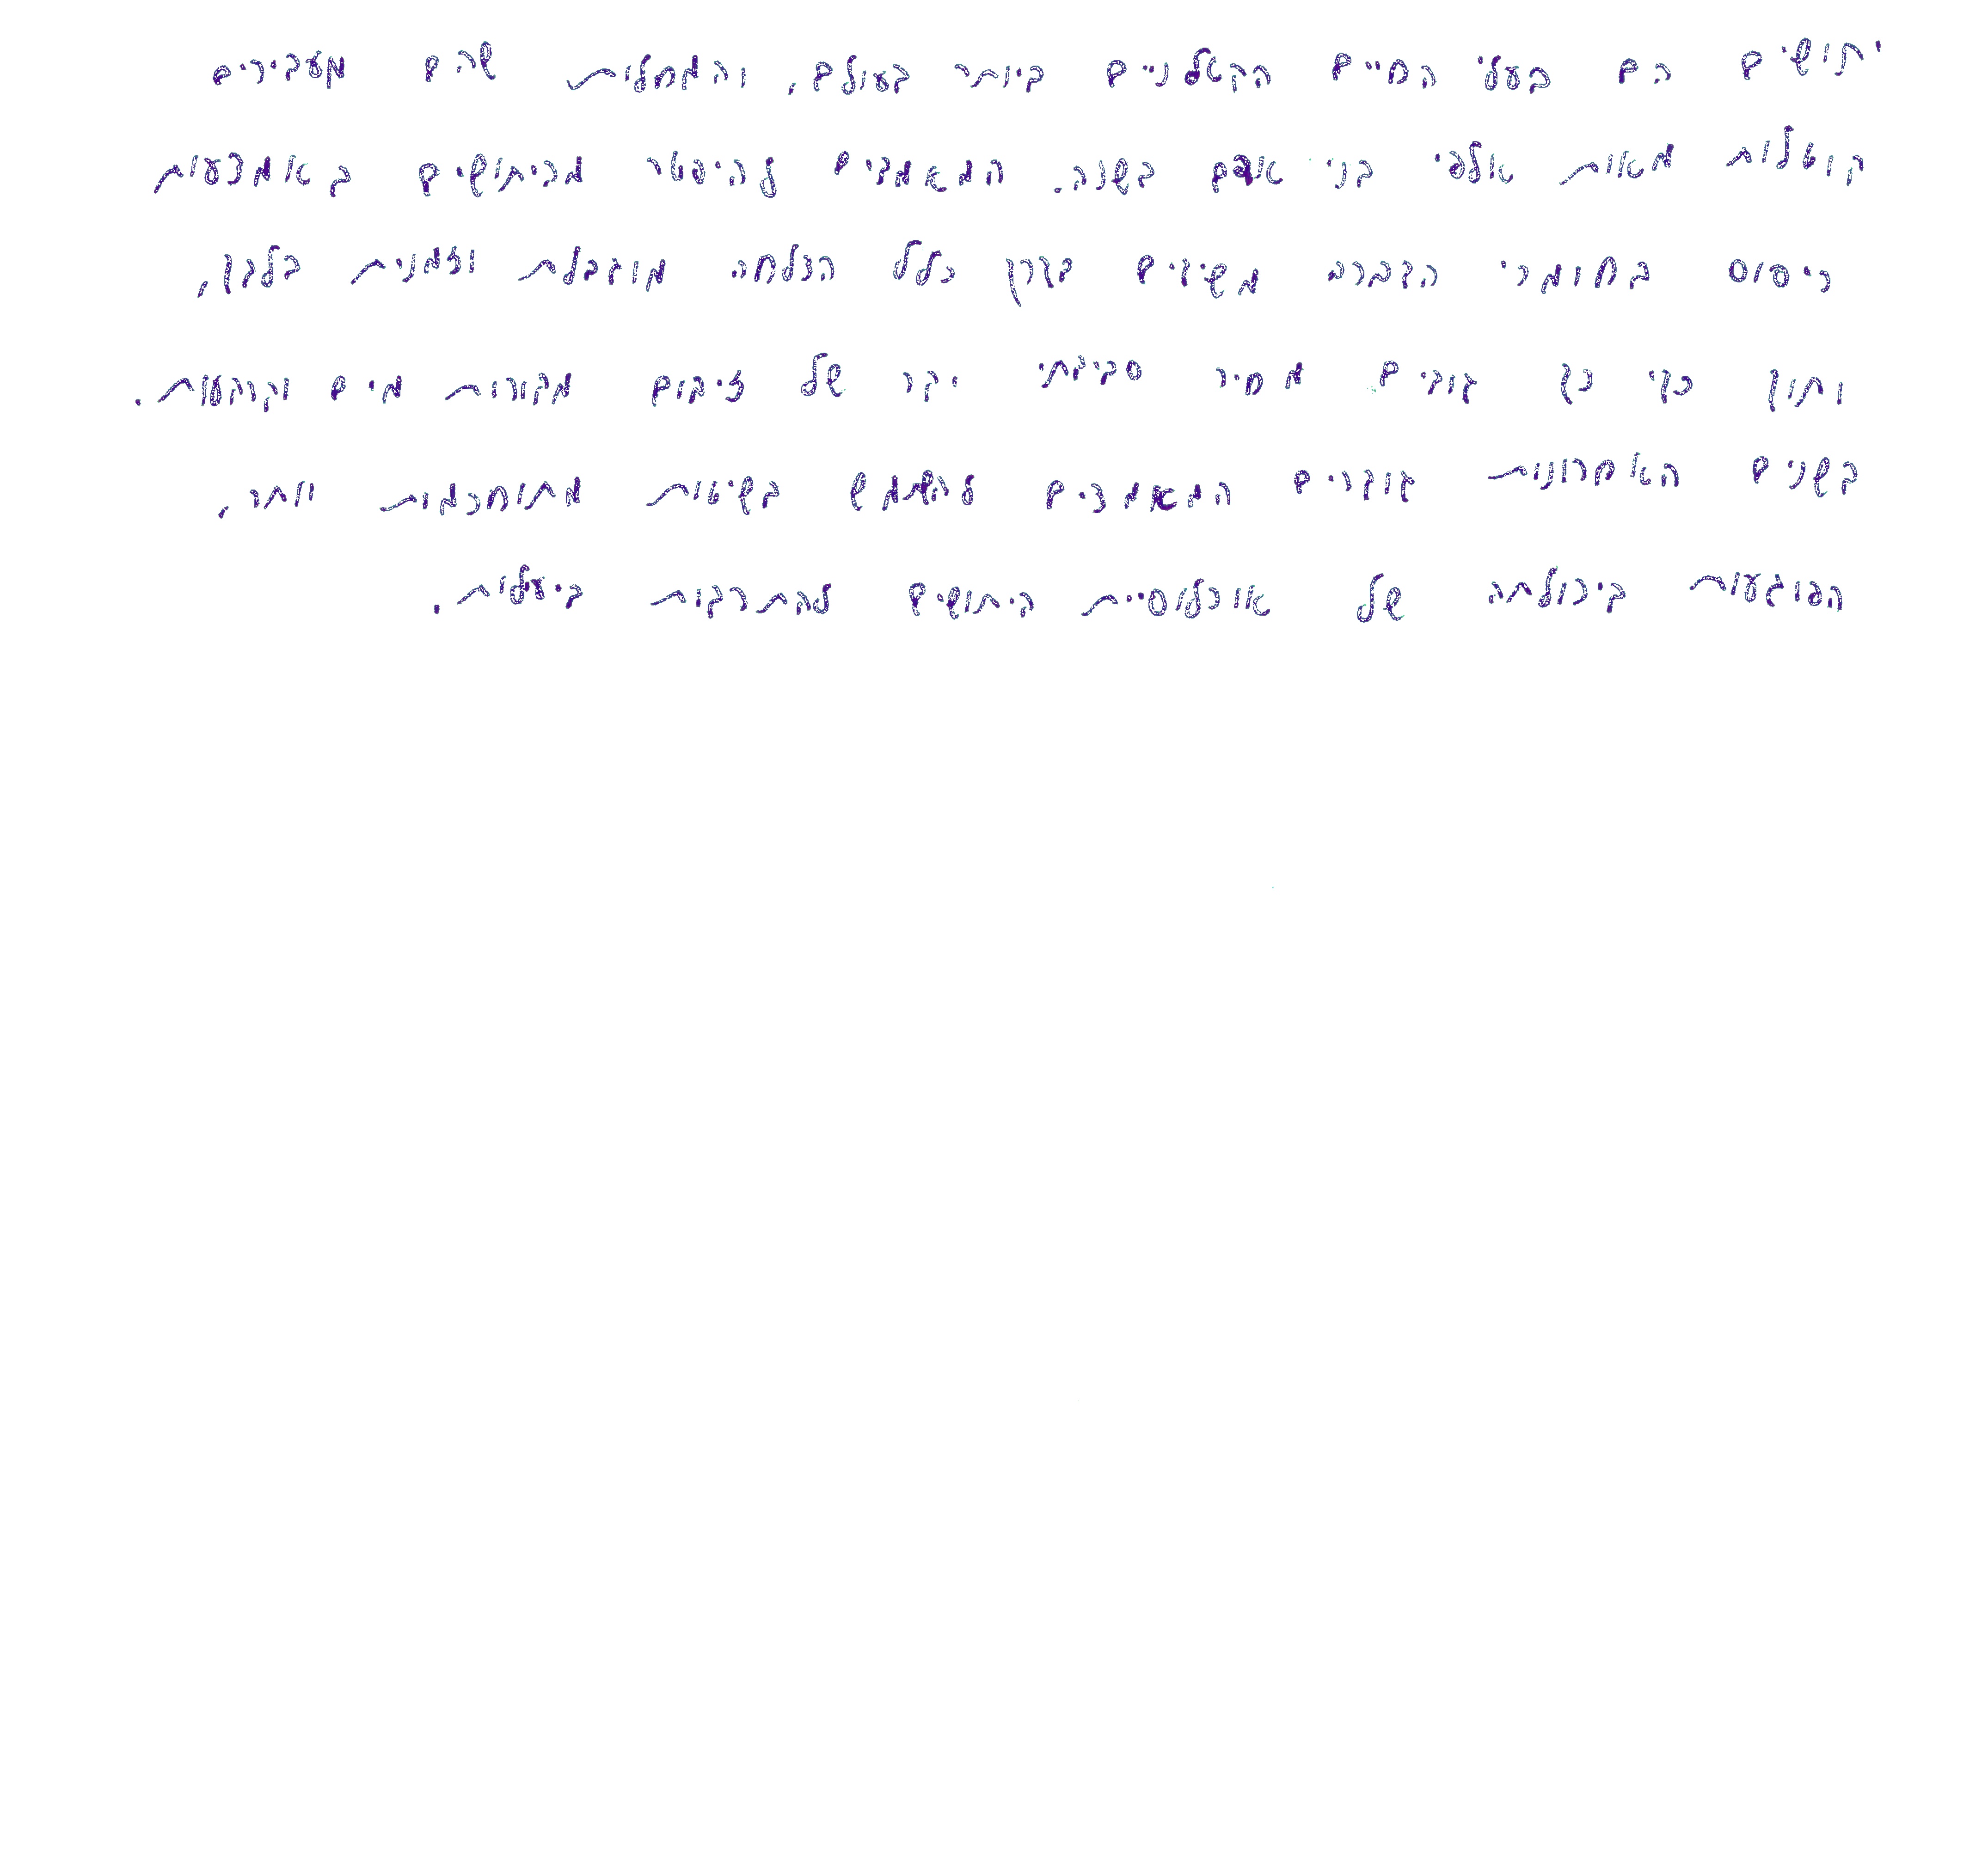 יתושים הם בעלי החיים הקטלניים ביותר בעולם, והמחלות שהם מעבירים
קוטלות מאות אלפי בני אדם בשנה. המאמצים להיפטר מהיתושים באמצעות
ריסוס בחומרי הדברה משיגים בדרך כלל הצלחה מוגבלת וזמנית בלבד,
ותוך כדי כך גובים מחיר סביבתי יקר של זיהום מקורות מים וקרקעות.
בשנים האחרונות גוברים המאמצים להשתמש בשיטות מתוחכמות יותר,
הפוגעות ביכולתה של אוכלוסיית היתושים להתרבות ביעילות.